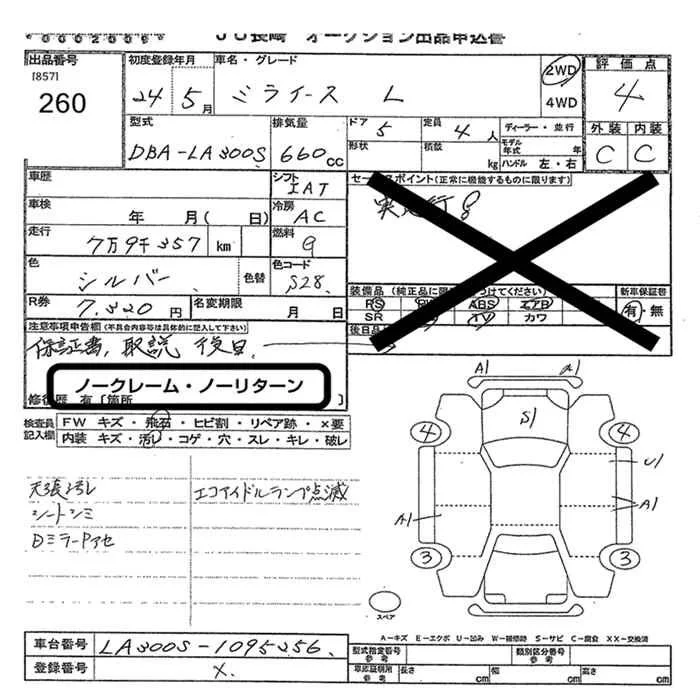 0002006
JU長崎 オークション出品申込書
出品番号
[857]
260
初度登録年月
24年 5月
車名・グレード
ミライース L
2WD
4WD
評価点
4
外装 内装
C C
型式
DBA-LA300S
排気量
660cc
ドア 5
形状
定員 4人
積数 kg
ディーラー・並行
モデル年式 年
ハンドル 左・右
車歴
シフト
IAT
車検
年 月( 日)
冷房
AC
走行
7万9千357 km
燃料
g
色
シルバー
色替
色コード
S28
R券
7.320円
名変期限
月 日
セールスポイント(正常に機能するものに限ります)
装備品(純正品に限
つけてください)
SR TV カワ
ABS エアB
新車保証書
有・無
後日品
注意事項申告欄(不具合内容等は具体的に記入して下さい)
保証書, 取説 後日
ノークレーム・ノーリターン
修復歴 有〔箇所 〕
検査員記入欄
FW キズ・飛石・ヒビ割・リペア跡・×要
内装 キズ・汚レ・コゲ・穴・スレ・キレ・破レ
天張汚レ
エコアイドルランプ点滅
シートシミ
DミラーPアセ
A1
S1
4
4
U1
A1
A1
3
3
スペア
A-キズ E-エクボ U-凹み W-補修跡 S-サビ C-腐食 XX-交換済
車台番号
LA300S-1095256
登録番号
X
型式指定番号 参考
類別区分番号 参考
車庫証明用 参考
長さ cm
幅 cm
高さ cm